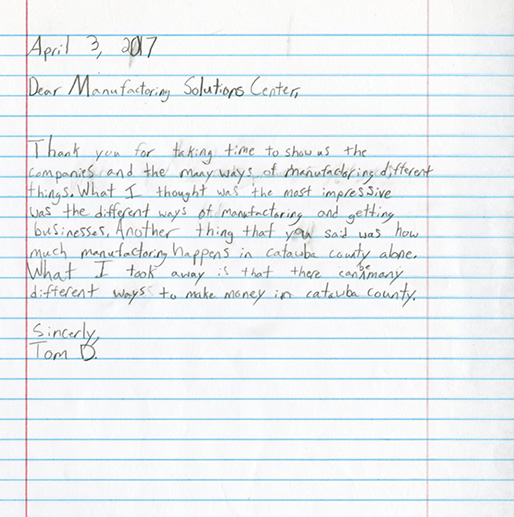 April 3, 2017
Dear Manufactoring Solutions Center,
Thank you for taking time to show us the
companies and the many ways of manufactoring different
things. What I thought was the most impressive
was the different ways of manufactoring and getting
businesses. Another thing that you said was how
much manufactoring happens in catawba county alone.
What I took away is that there can be many
different ways to make money in catawba county.
Sincerly,
Tom D.